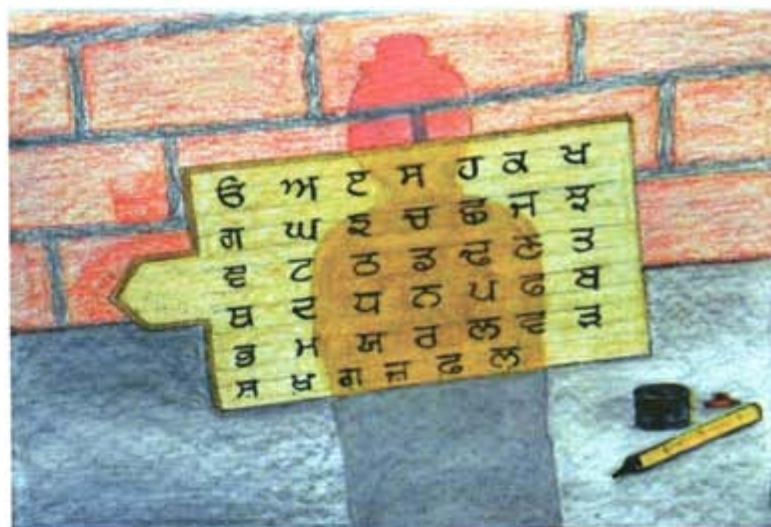 ੳ ਅ ੲ ਸ ਹ ਕ ਖ
ਗ ਘ ਙ ਚ ਛ ਜ ਝ
ਞ ਟ ਠ ਡ ਢ ਣ ਤ
ਥ ਦ ਧ ਨ ਪ ਫ ਬ
ਭ ਮ ਯ ਰ ਲ ਵ ੜ
ਸ਼ ਖ਼ ਗ਼ ਜ਼ ਫ਼ ਲ਼